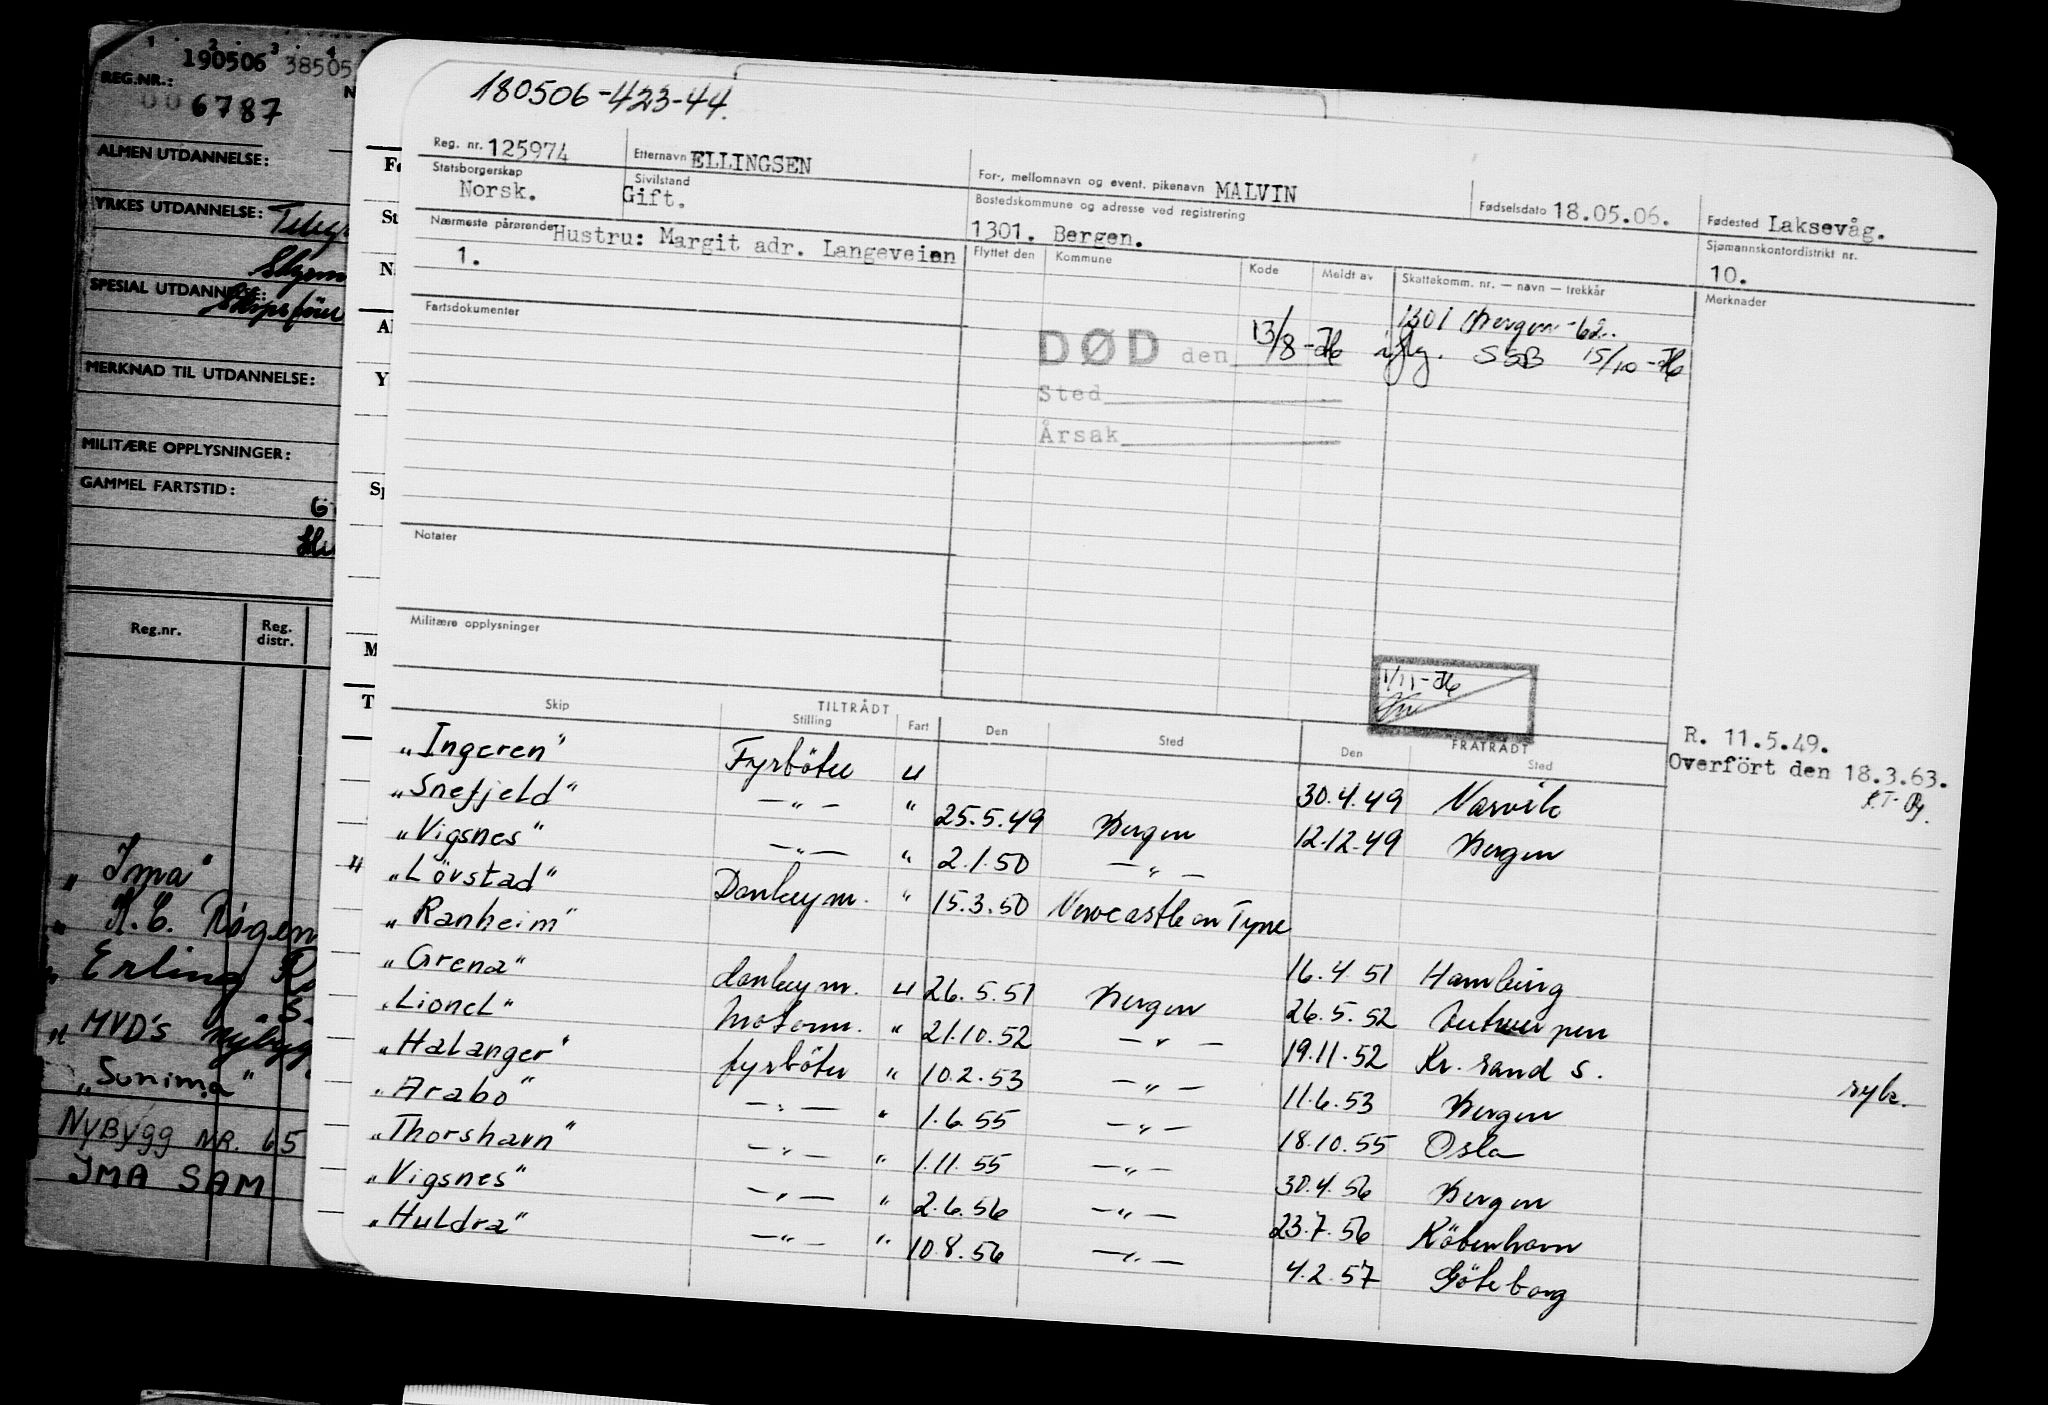 1 2 3 4
190506 38505
REG.NR.:
006787
ALMEN UTDANNELSE:
YRKES UTDANNELSE:
SPESIAL UTDANNELSE:
Skipsfører
MERKNAD TIL UTDANNELSE:
MILITÆRE OPPLYSNINGER:
GAMMEL FARTSTID:
Reg.nr. Reg. distr.
"Ima"
" K.C. Rogen
" Erling
" MVD's Nybygg
"Sunima"
NYBYGG NR. 65
IMA SAM
180506-423-44.
Reg. nr. 125974 Etternavn ELLINGSEN For-, mellomnavn og event. pikenavn MALVIN Fødselsdato 18.05.06. Fødested Laksevåg.
Statsborgerskap Norsk. Sivilstand Gift. Bostedskommune og adresse ved registrering 1301. Bergen. Sjømannskontordistrikt nr. 10.
Nærmeste pårørende Hustru: Margit adr. Langeveien 1.
Flyttet den Kommune Kode Meldt av Skattekomm. nr. — navn — trekkår Merknader
1301 Bergen -62.
Fartsdokumenter
DØD den 13/8-76 iflg. SSB 15/10-76
Sted
Årsak
Notater
Militære opplysninger
1/11-76
R. 11.5.49.
Overført den 18.3.63.
TILTRÅDT FRATRÅDT
Skip Stilling Fart Den Sted Den Sted
"Ingeren" Fyrböter u 30.4.49 Narvik
"Snefjeld" —"— " 25.5.49 Bergen 12.12.49 Bergen
"Vigsnes" —"— " 2.1.50 —"—
"Lövstad" Donkeym. " 15.3.50 Newcastle on Tyne
"Ranheim" 16.4.51 Hamburg
"Grena" donkeym. u 26.5.51 Bergen 26.5.52 Antwerpen
"Lionel" Motorm. " 21.10.52 —"— 19.11.52 Kr. sand S.
"Halanger" fyrböter " 10.2.53 —"— 11.6.53 Bergen syk.
"Arabo" —"— " 1.6.55 —"— 18.10.55 Oslo
"Thorshavn" —"— " 1.11.55 —"— 30.4.56 Bergen
"Vigsnes" —"— " 2.6.56 —"— 23.7.56 Köbenhavn
"Huldra" —"— " 10.8.56 —"— 4.2.57 Göteborg